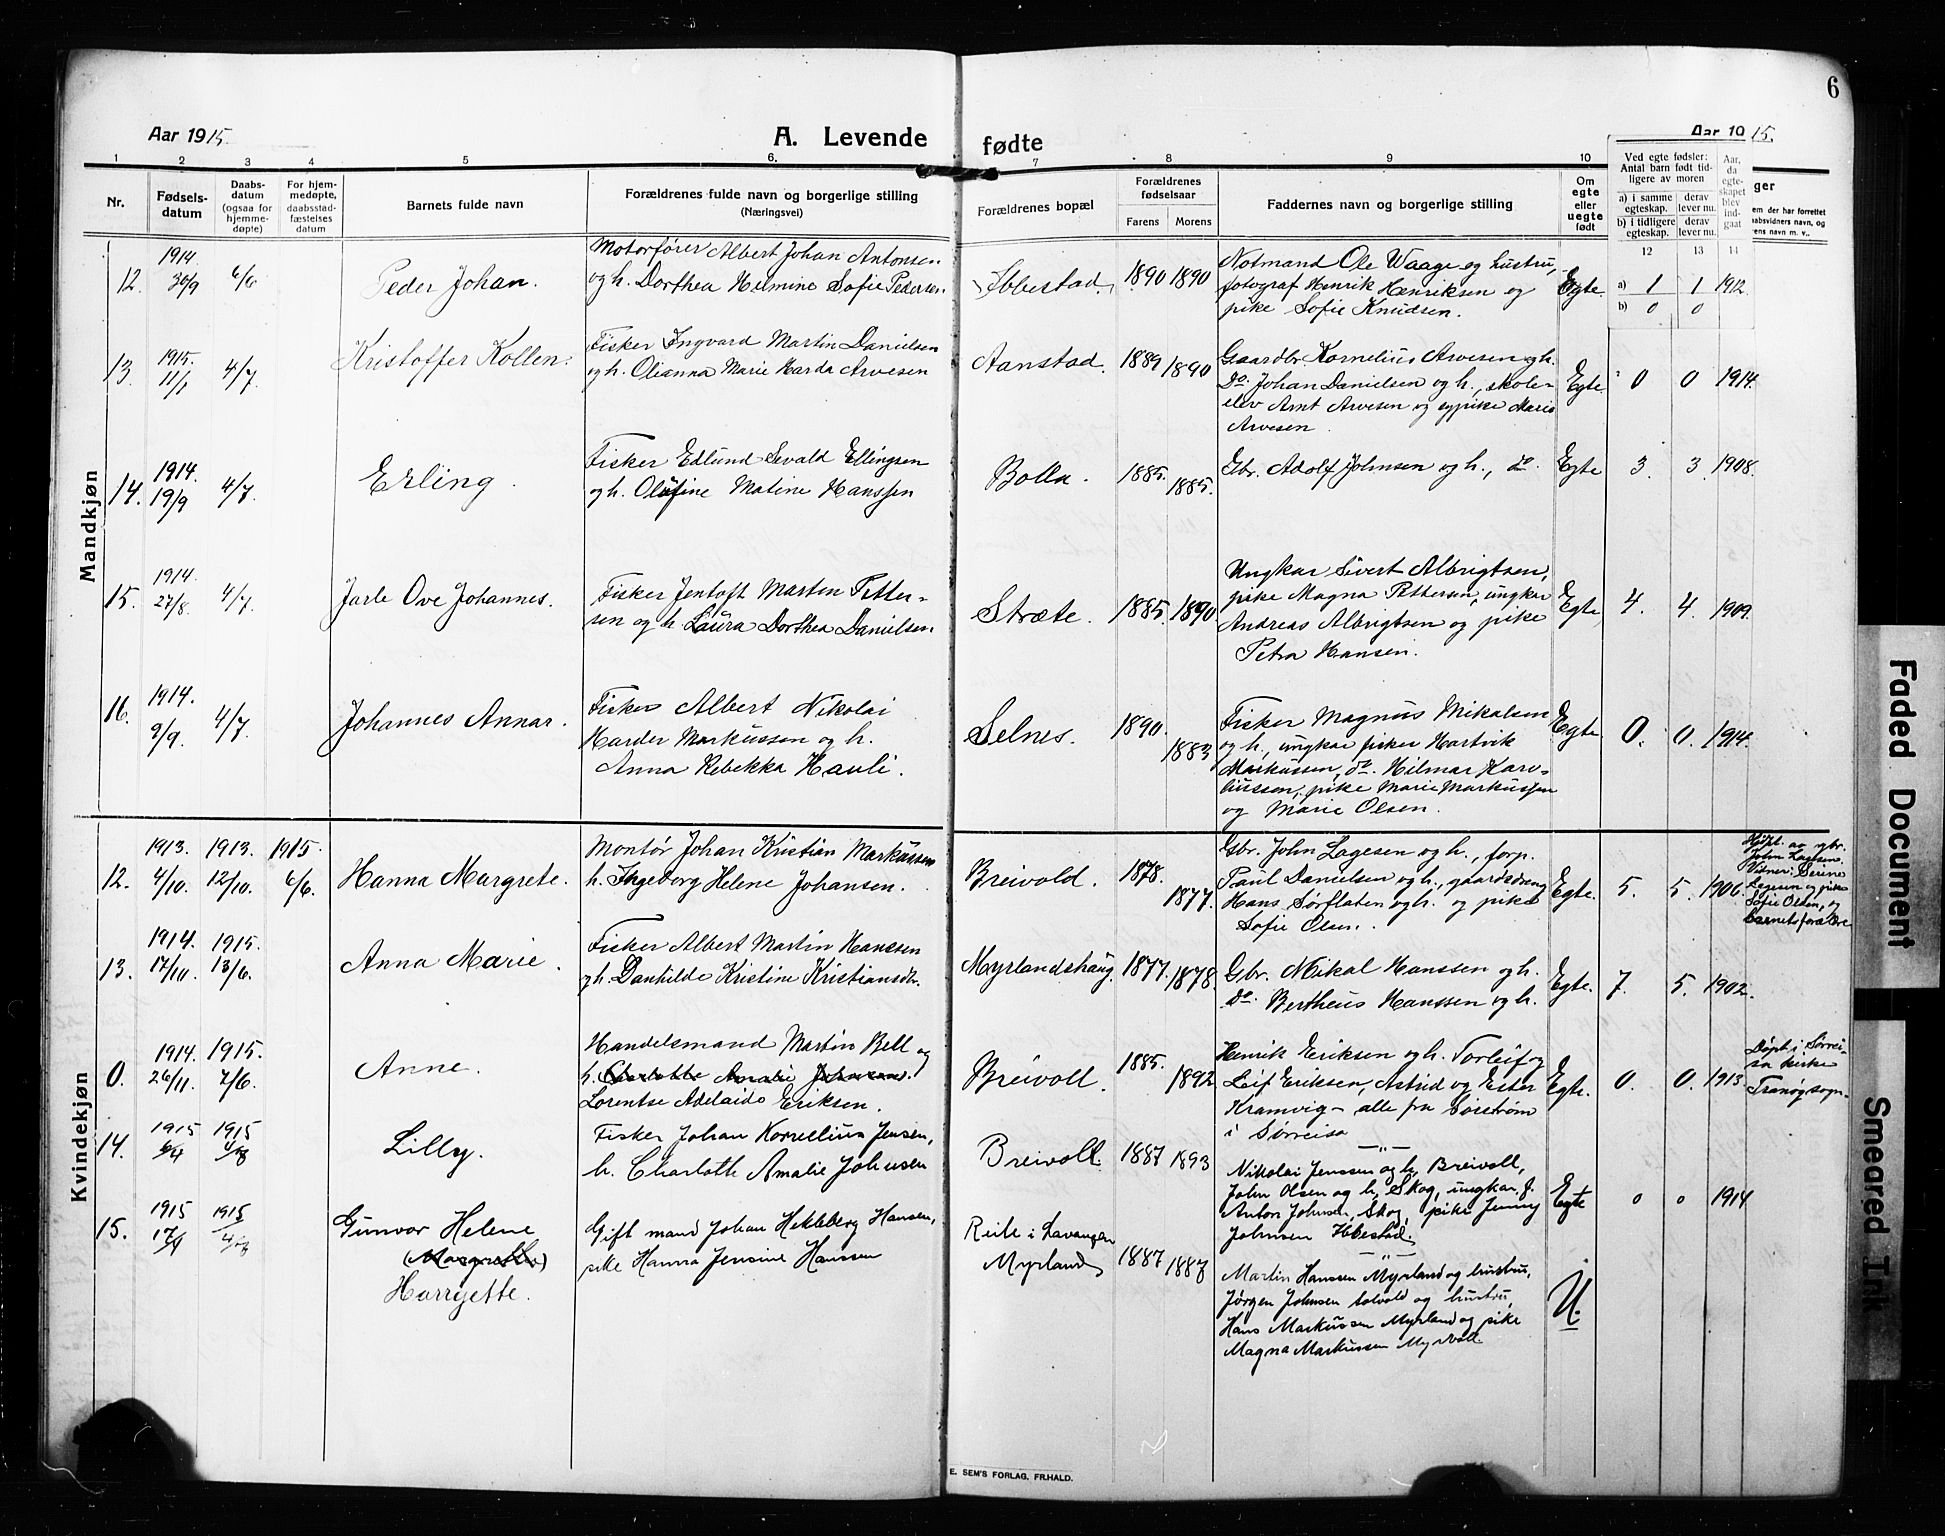 6
Aar 1915.
A. Levende
fødte
Aar 1915.
1 2 3 4 5 6. 7 8 9 10
Nr.
Fødsels-
datum
Daabs-
datum
(ogsaa for
hjemme-
døpte)
For hjem-
medøpte,
daabsstad-
fæstelses
datum
Barnets fulde navn
Forældrenes fulde navn og borgerlige stilling
(Næringsvei)
Forældrenes bopæl
Forældrenes
fødselsaar
Farens Morens
Faddernes navn og borgerlige stilling
Om
egte
eller
uegte
født
Ved egte fødsler:
Antal barn født tid-
ligere av moren
a) i samme
egteskap.
derav
lever nu.
b) i tidligere
egteskap.
derav
lever nu.
Aar,
da
egte-
skapet
blev
ind-
gaat
12 13 14
Mandkjøn
12.
1914.
30/9
6/6
Peder Johan.
Motorfører Albert Johan Antonsen
og h. Dorthea Helmine Sofie Pedersen
Ibbestad.
1890 1890
Notmand Ole Waage og hustru,
fotograf Henrik Henriksen og
pike Sofie Knudsen.
Egte.
a) 1 1 1912.
b) 0 0
13.
1915.
11/1
4/7.
Kristoffer Kollen.
Fisker Ingvard Martin Danielsen
og h. Olianna Marie Harda Arvesen
Aanstad.
1889 1890
Gaardbr. Kornelius Arvesen og h.
Do. Johan Danielsen og h., skole-
elev Arnt Arvesen og sypike Marie
Arvesen.
Egte.
0 0 1914.
14.
1914.
19/9
4/7.
Erling.
Fisker Edlund Sevald Ellingsen
og h. Olufine Matine Hanssen
Bolla.
1885. 1885.
Gbr. Adolf Johnsen og h., do.
Egte
3. 3. 1908.
15.
1914.
27/8.
4/7.
Jarle Ove Johannes.
Fisker Jentoft Marten Petter-
sen og h. Laura Dorthea Danielsen
Stræte.
1885. 1890.
Ungkar Sivert Albrigtsen,
pike Magna Pettersen, ungkar
Andreas Albrigtsen og pike
Petra Hansen.
Egte
4. 4. 1909.
16.
1914.
9/9.
4/7.
Johannes Annar.
Fisker Albert Nikolai
Harder Markussen og h.
Anna Rebekka Hauli.
Selnes.
1890. 1883
Fisker Magnus Mikalsen
og h., ungkar fisker Hartvik
Markussen, do. Hilmar Karo-
liussen, pike Marie Markussen
og Marie Olsen.
Egte
0. 0. 1914.
Kvindekjøn
12.
1913.
4/10.
1913.
12/10.
1915.
6/6.
Hanna Margrete.
Montør Johan Kristian Markussen
h. Ingeborg Helene Johansen.
Breivold.
1878. 1877.
Gbr. John Lagesen og h., forp.
Paul Danielsen og h., gaardsdreng
Hans Sørflaten og h. og pike
Sofie Olsen.
Egte.
5. 5. 1906.
Hjdpt. av gbr.
John Lagesen.
Vidner: Serine
Lagesen og pike
Sofie Olsen, og
barnets forældre
13.
1914.
17/10.
1915.
13/6.
Anna Marie.
Fisker Albert Martin Hanssen
og h. Danhilde Kristine Kristiansdtr.
Myrlandshaug.
1877. 1878.
Gbr. Mikal Hanssen og h.
Do. Bertheus Hanssen og h.
Egte.
7. 5. 1902.
0.
1914.
26/11.
1915.
7/6.
Anne.
Handelsmand Martin Bell og
h. Charlotte Amalie Johnsen.
Lorentse Adelaide Eriksen.
Breivoll.
1885. 1892
Henrik Eriksen og h. Torleif og
Leif Eriksen, Astrid og Ester
Kramvig – alle fra Sørstrøm
i Sørreisa
Egte.
0. 0. 1913.
Døpt i Sørrei-
sa kirke
Tranøy sogn.
14.
1915
1915
Lilly.
Fisker Johan Kornelius Jensen,
h. Charlotte Amalie Johnsen
Breivoll
1887 1893
Nikolai Jenssen og h. Breivoll,
John Olsen og h. Skog, ungkar f.
Anton Johnsen, Skog, pike Jenny
Johnsen Ibbestad.
Egte
0 0 1914
15.
1915
1915
Gunvor Helene
(Margrethe)
Harryette.
Gift mand Johan Hekleberg Hansen,
pike Hanna Jensine Hanssen
Reite i Lavangen
Myrland
1887 1887
Martin Hanssen Myrland og hustru,
Jørgen Johnsen Solvold og hustru,
Hans Markussen Myrland og pike
Magna Markussen Myrvoll.
U.
E. SEM'S FORLAG, FR.HALD.
Faded Document
Smeared Ink